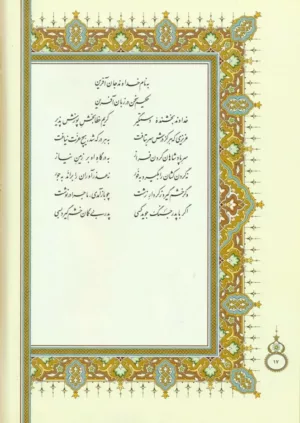 به نام خداوند جان آفرین
حکیم سخن در زبان آفرین
خداوند بخشنده دستگیر کریم خطابخش پوزش پذیر
عزیزی که هر کز درش سر بتافت به هر در که شد هیچ عزت نیافت
سر پادشاهان گردن فراز به درگاه او بر زمین نیاز
نه گردن کشان را بگیرد به فور نه عذرآوران را براند به جور
وگر خشم گیرد ز کردار زشت چو بازآمدی ماجرا در نوشت
اگر با پدر جنگ جوید کسی پدر بی گمان خشم گیرد بسی
۱۷